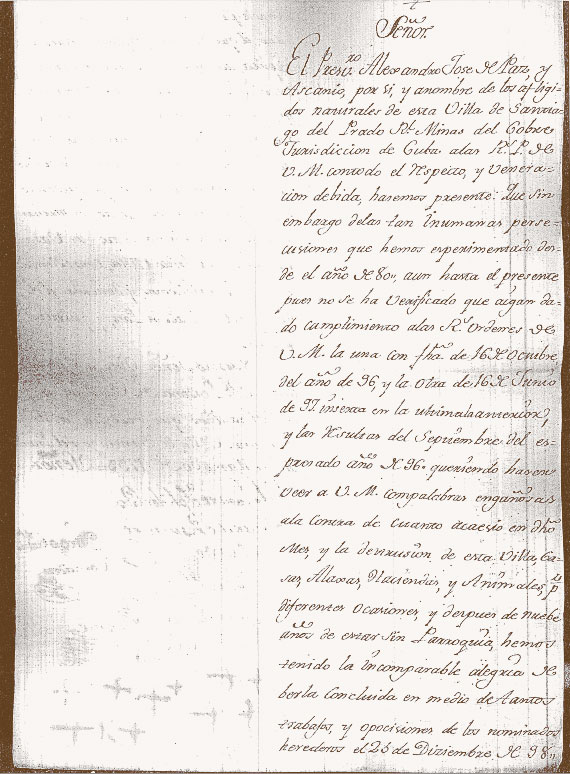 Señor.
El Presvro. Alexandro Jose de Paz, y
Ascanio, por si, y anombre de los afligi-
dos naturales de esta Villa de Santia-
go del Prado Rl. Minas del Cobre
Jurisdiccion de Cuba alas Rl. P. de
V. M. contodo el respecto, y venera-
cion debida, hasemos presente: Que sin
embargo delas tan inumanas perse-
cusiones que hemos esperimentado des-
de el año de 80,, aun hasta el presente
pues no se ha verificado que aigan da-
do cumplimiento alas Rs. Ordenes de
V. M. la una con fha. de 16 de Octubre
del año de 96, y la otra de 16 de Junio
de 97. inserta en la ultima la anterior,
y las resultas del Septiembre del es-
presado año de 96. queriendo haser
veer a V. M. compalabras engañosas
ala contra de cuanto acaesio en dho.
Mes, y la destrusion de esta Villa, Ca-
sas, Alaxas, Haciendas, y Animales, p
diferentes ocasiones, y despues de nuebe
años de estar sin Parroquia, hemos
tenido la incomparable alegria de
berla concluida en medio de tantos
trabajos, y opocisiones de los nominados
herederos el 25 de Diziembre de 98,,